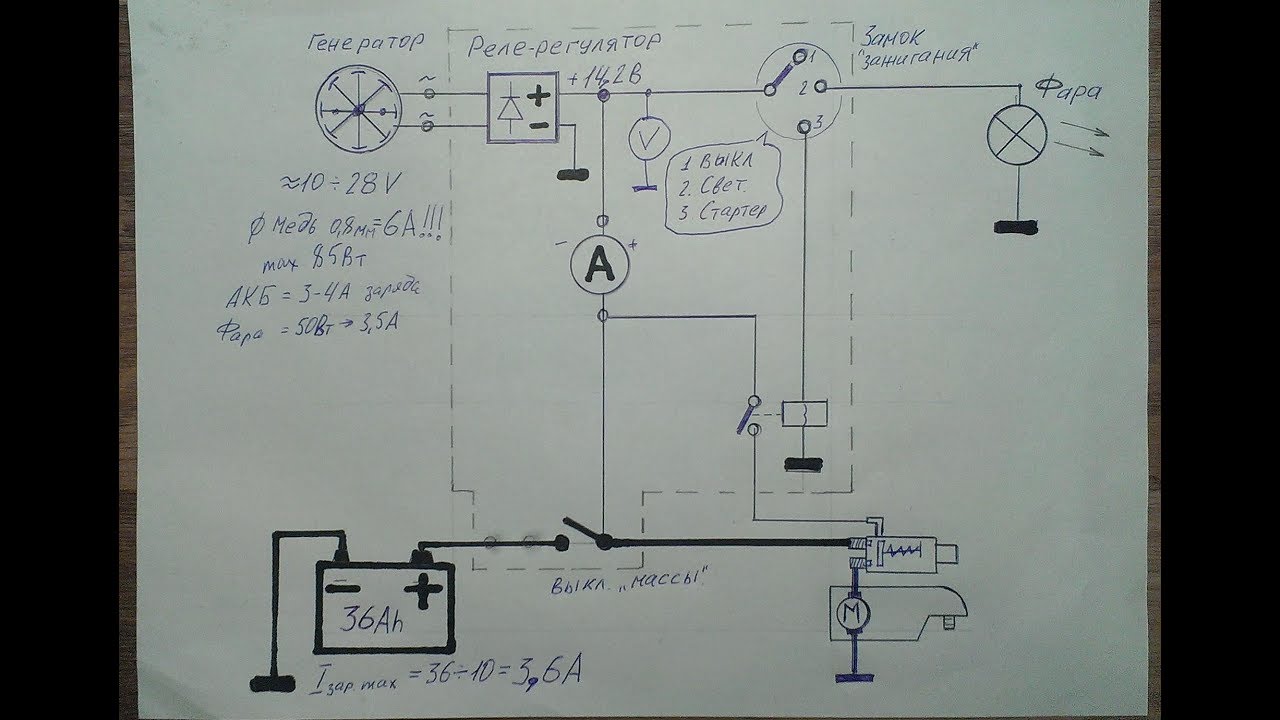 Генератор
Реле-регулятор
Замок
"зажигания"
+14,2В
~
~
+
-
V
1
2
3
Фара
1 Выкл
2. Свет.
3 Стартер
≈10÷28V
φ медь 0,8мм=6А!!!
max 85Вт
АКБ = 3-4А заряда
Фара = 50Вт→3,5А
- +
A
- +
36Ah
выкл. "массы"
M
I зар.max = 36÷10 = 3,6А